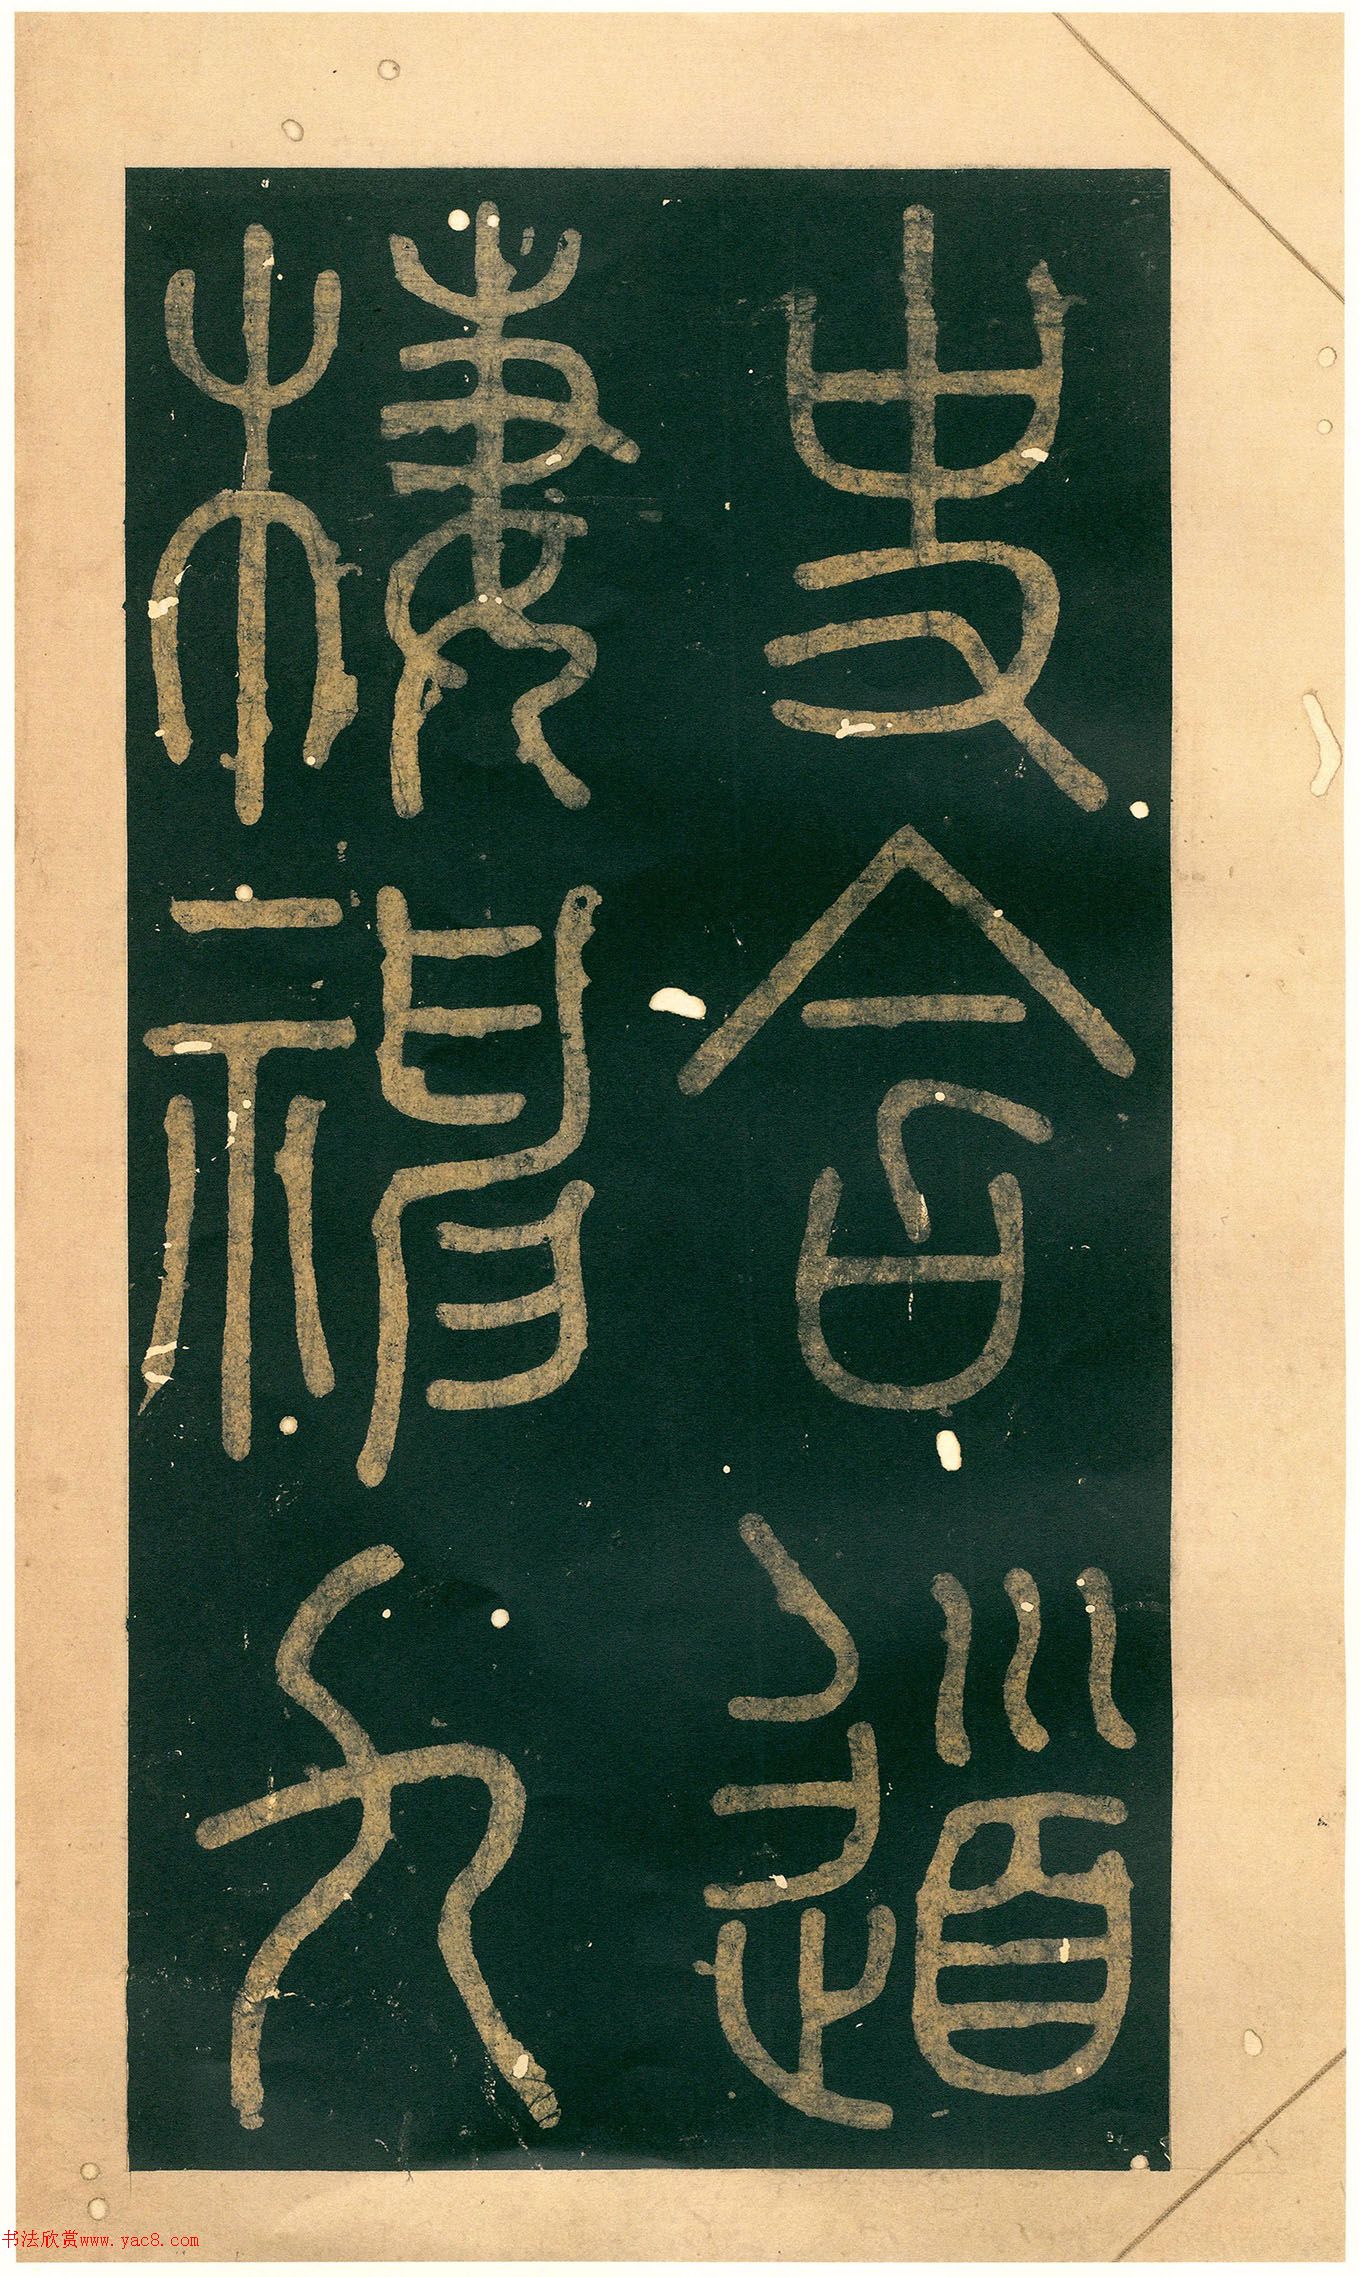 史含道
棲神九
书法欣赏www.yac8.com